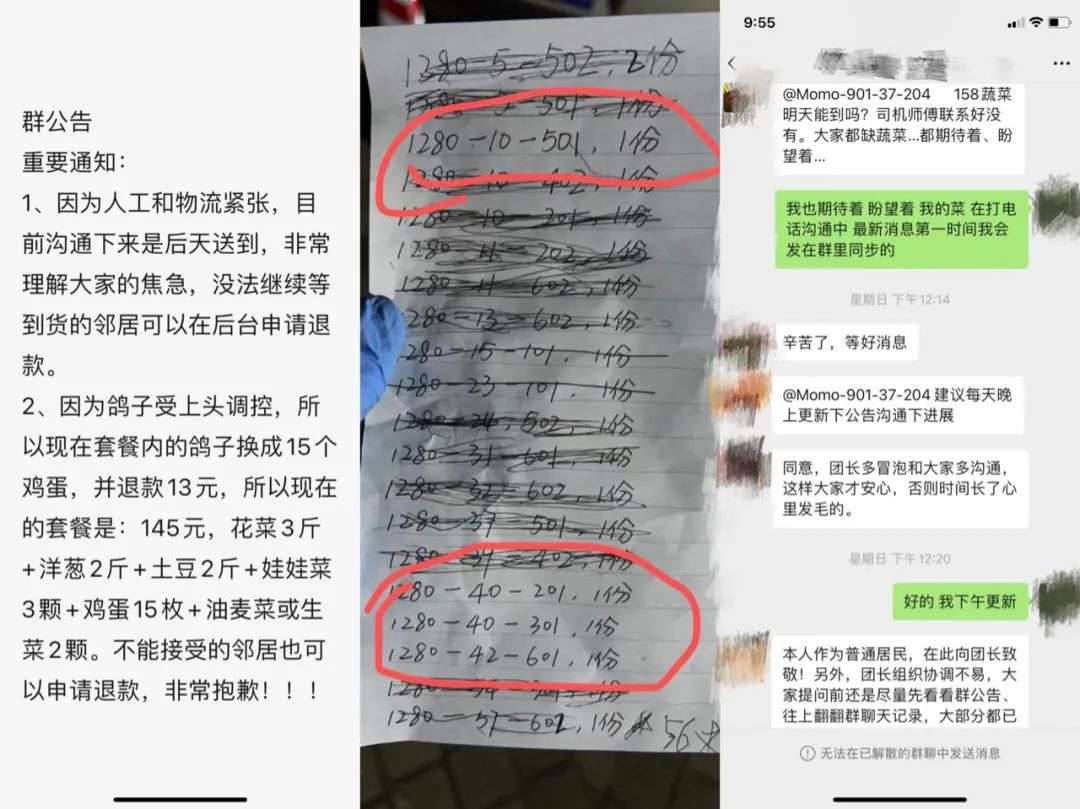 群公告
重要通知：
1、因为人工和物流紧张，目
前沟通下来是后天送到，非常
理解大家的焦急，没法继续等
到货的邻居可以在后台申请退
款。
2、因为鸽子受上头调控，所
以现在套餐内的鸽子换成15个
鸡蛋，并退款13元，所以现在
的套餐是：145元，花菜3斤
+洋葱2斤+土豆2斤+娃娃菜
3颗+鸡蛋15枚+油麦菜或生
菜2颗。不能接受的邻居也可
以申请退款，非常抱歉！！！
1280-5-502，2份
1280-5-501，1份
1280-10-501，1份
1280-10-402，1份
1280-10-201，1份
1280-11-202，1份
1280-11-602，1份
1280-13-602，1份
1280-15-101，1份
1280-23-101，1份
1280-24-502，1份
1280-31-601，1份
1280-32-602，1份
1280-37-501，1份
1280-39-402，1份
1280-40-201，1份
1280-40-301，1份
1280-42-601，1份
1280-57-602，1份
9:55
@Momo-901-37-204 158蔬菜
明天能到吗？司机师傅联系好没
有。大家都缺蔬菜...都期待着、盼
望着...
我也期待着 盼望着 我的菜 在打电
话沟通中 最新消息第一时间我会
发在群里同步的
星期日 下午12:14
辛苦了，等好消息
@Momo-901-37-204 建议每天晚
上更新下公告沟通下进展
同意，团长多冒泡和大家多沟通，
这样大家才安心，否则时间长了心
里发毛的。
星期日 下午12:20
好的 我下午更新
本人作为普通居民，在此向团长致
敬！另外，团长组织协调不易，大
家提问前还是尽量先看看群公告、
往上翻翻群聊天记录，大部分都已
无法在已解散的群聊中发送消息